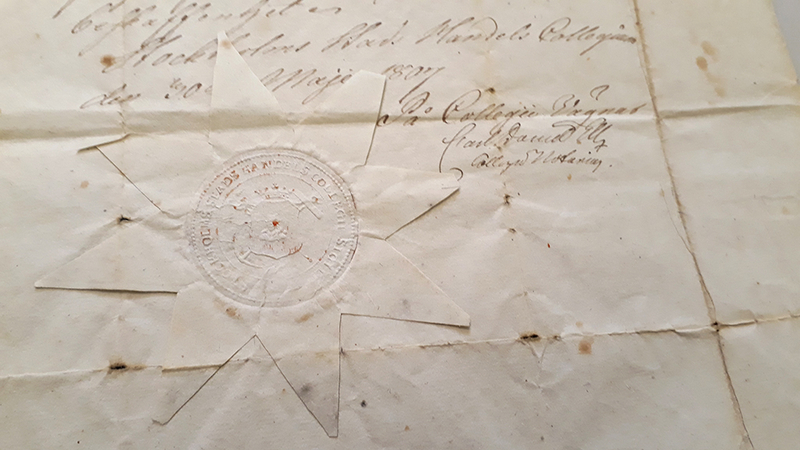 Stockholms Stads Handels Collegium
den 30 Maji 1807
På Collegii Wägnar
Carl David
Collegii Notarius.
STADS HANDELS COLLEGII SIGILL